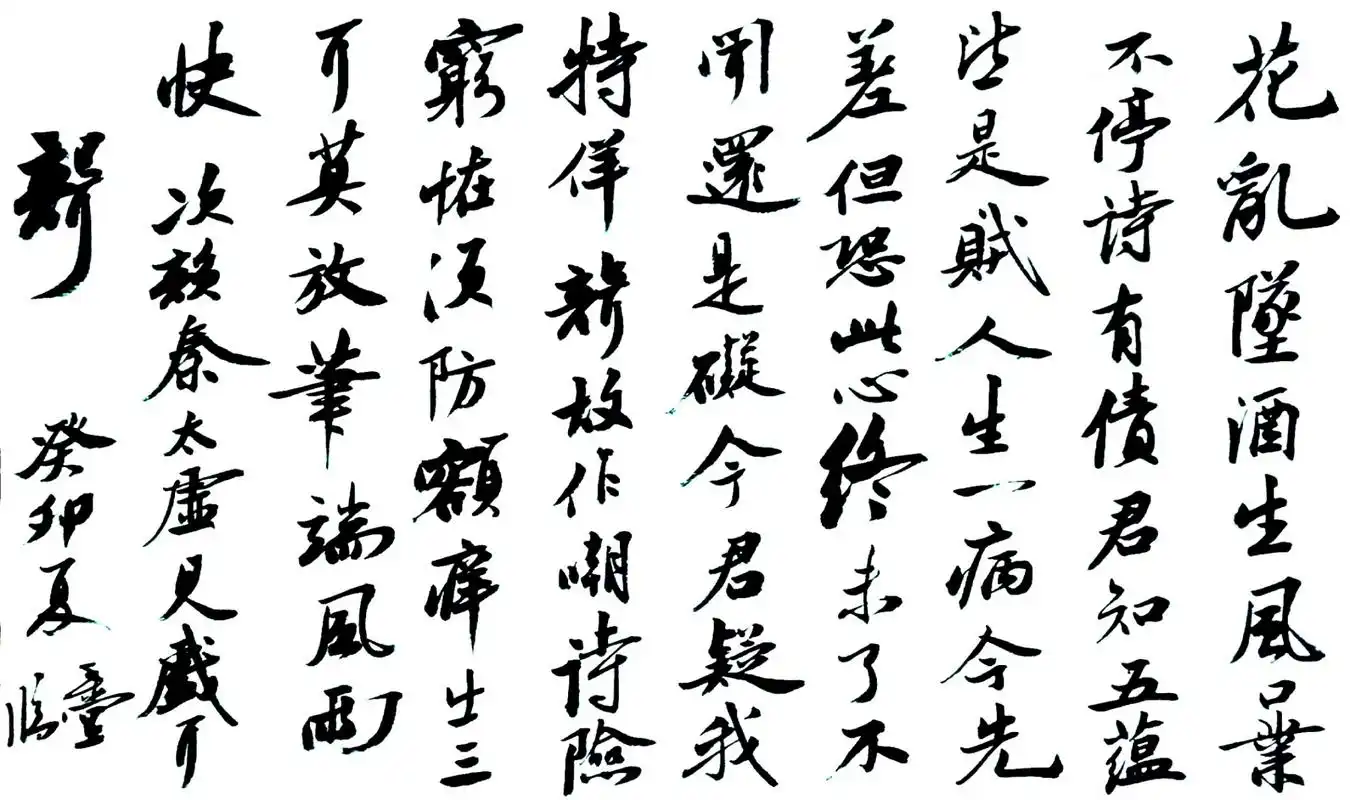 花亂墜酒生風口業
不停詩有債君知五蘊
皆是賊人生一病今先
差但恐此心終未了不
聞還是礙今君疑我
特佯聾故作嘲詩險
窮怪須防額痒出三
耳莫放筆端風雨
快 次韻秦太虛見戲耳
聾 癸卯夏臺臨